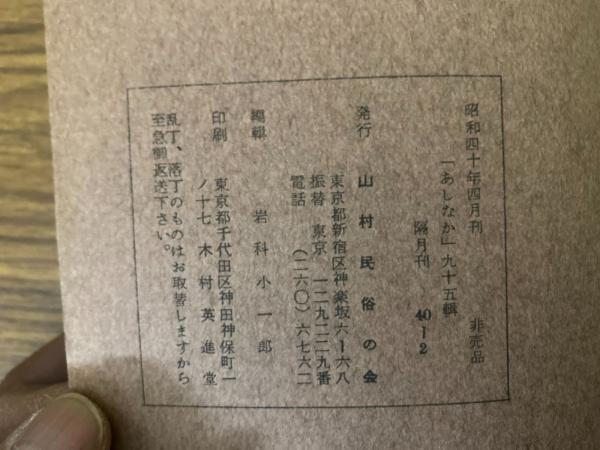 昭和四十年四月刊 非売品
「あしなか」九十五輯
隔月刊 40-2
発行 山村民俗の会
東京都新宿区神楽坂六ー六八
振替 東京 一二九二二九番
電話 (二六〇)六七六二
編輯 岩科小一郎
印刷 東京都千代田区神田神保町一
ノ十七 木村英進堂
乱丁、落丁のものはお取替しますから
至急御返送下さい。